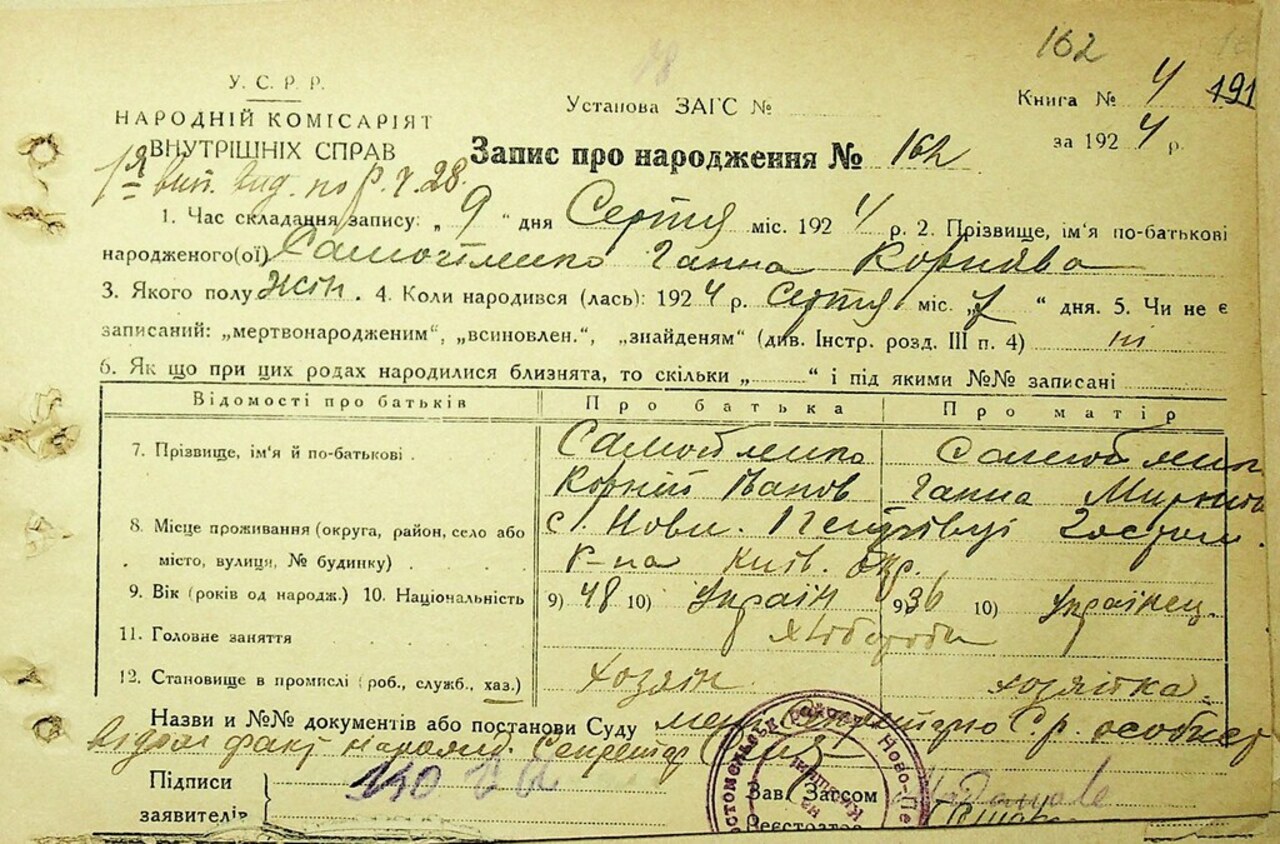 162
У. С. Р. Р.
НАРОДНІЙ КОМІСАРІЯТ
ВНУТРІШНІХ СПРАВ
Установа ЗАГС №
Книга № 4 191
за 1924 р.
Запис про народження № 162
1. Час складання запису: „ 9 “ дня Серпня міс. 1924 р. 2. Прізвище, ім'я по-батькові
народженого(ої) Самойленко Ганна Корніева
3. Якого полу жін. 4. Коли народився (лась): 1924 р. серпня міс. „ 7 “ дня. 5. Чи не є
записаний: „мертвонародженим“, „всиновлен.“, „знайденям“ (див. Інстр. розд. III п. 4) ні
6. Як що при цих родах народилися близнята, то скільки „ “ і під якими №№ записані
Відомості про батьків Про батька Про матір
7. Прізвище, ім'я й по-батькові . Самойленко Самойленко
Корній Іванов Ганна
8. Місце проживання (округа, район, село або с. Нови. Петрівці Гостом.
місто, вулиця, № будинку) . . р-на Київ. окр.
9. Вік (років од народж.) 10. Національність 9) 48 10) Україн 9) 36 10) Українец.
11. Головне заняття хлібороби
12. Становище в промислі (роб., служб., хаз.) хозяін хозяйка.
Назви и №№ документів або постанови Суду С. р. особист
факт народж. Секретар
Підписи
заявителів
Зав. Загсом
Реєстратор